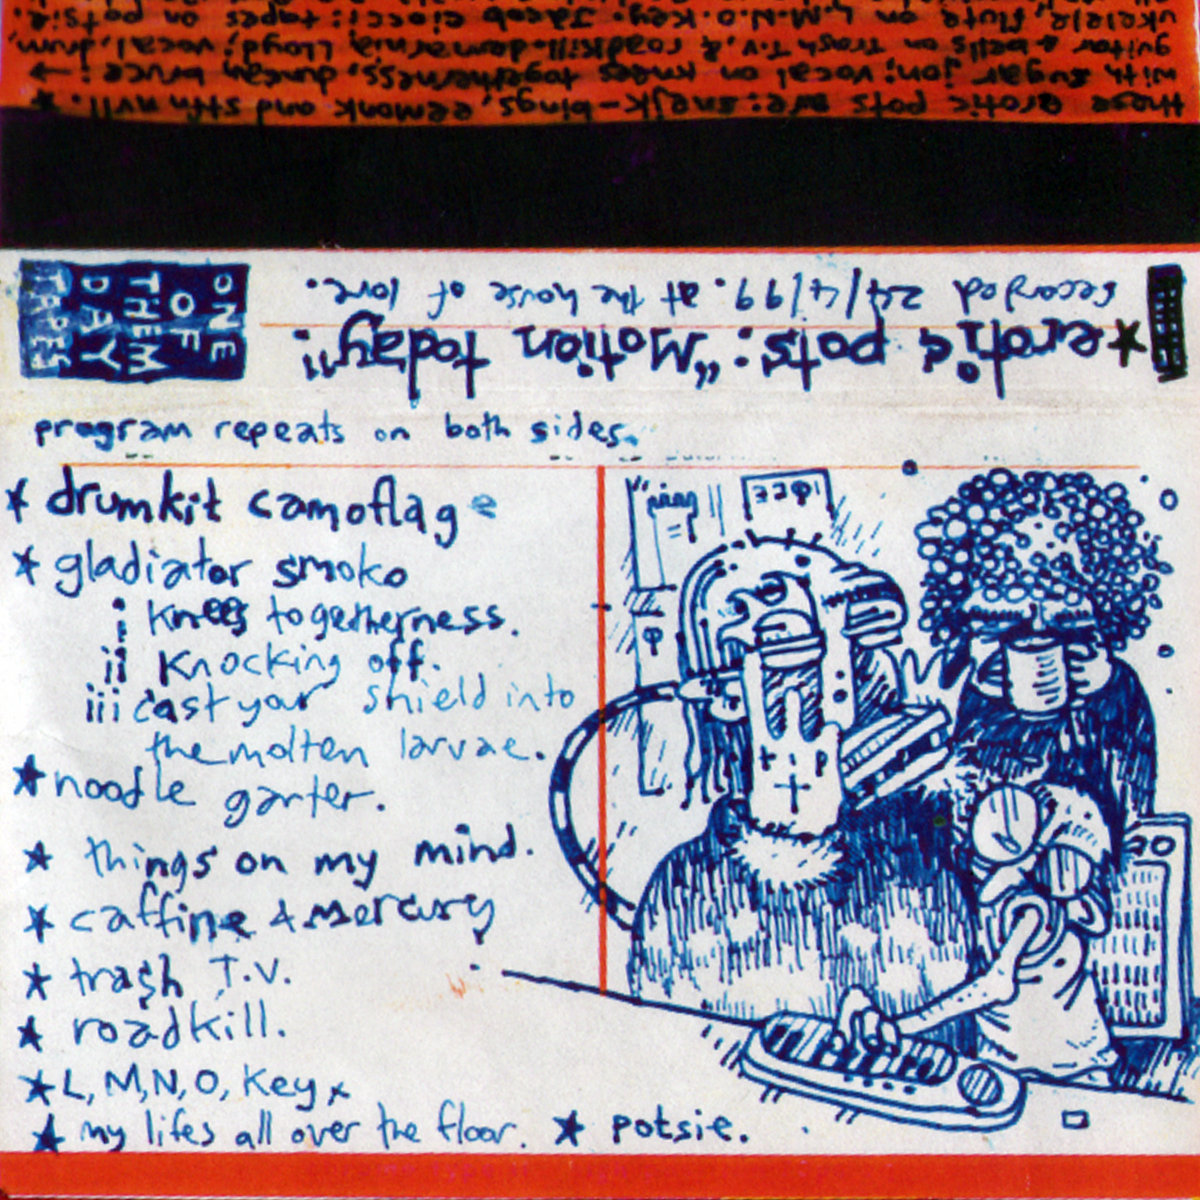 these erotic pots are: snejk-bings, eemonk and
with sugar jon; vocal on knees togetherness, duncan bruce: →
guitar & bells on trash T.V. & roadkill. demarnia lloyd; vocal, drum,
ukelele, flute on L.M.N.O.Key. Jacob ciocci: tapes on potsie.
★erotic pots: "Motion today".
recorded 24/4/99. at the house of love.
ONE
OF
THEM
DAY
TAPES
program repeats on both sides.
★ drumkit camoflage
★ gladiator smoko
i knees togetherness.
ii knocking off.
iii cast your shield into
the molten larvae.
★ noodle garter.
★ things on my mind.
★ caffine & mercury
★ trash T.V.
★ roadkill.
★ L, M, N, O, Key
★ my lifes all over the floor. ★ potsie.